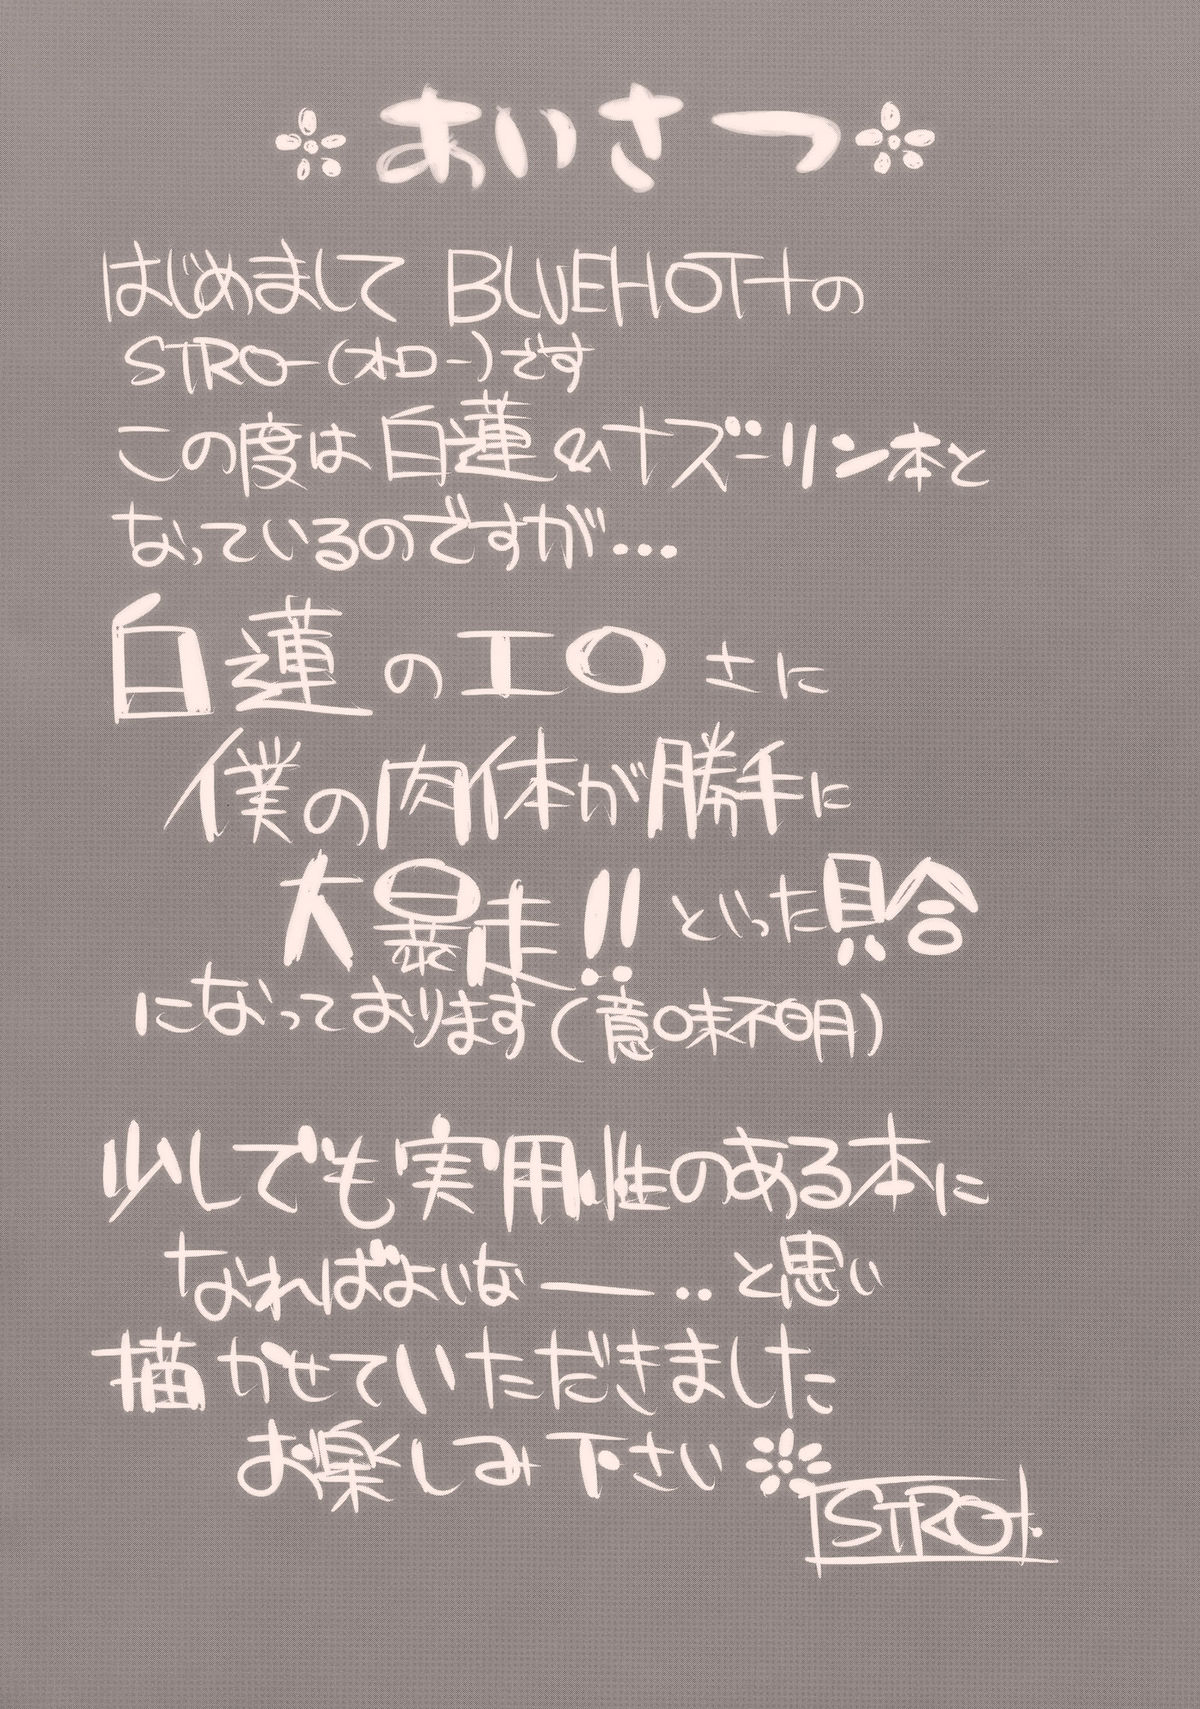 あいさつ
はじめまして BLUEHOT+の
STRO-(オロー)です
この度は白蓮&ナズーリン本と
なっているのですが…
白蓮のエロさに
僕の肉体が勝手に
大暴走!!といった具合
になっております(意味不明)
少しでも実用性のある本に
なればよいなー‥と思い
描かせていただきました
お楽しみ下さい